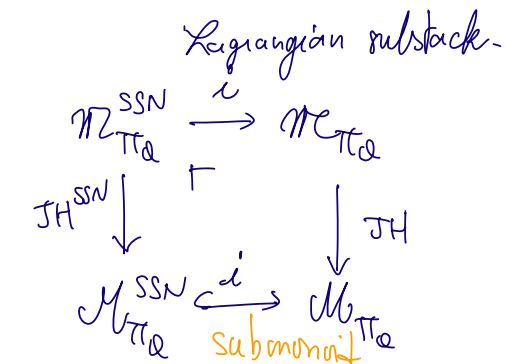 Lagrangian substack.
i
𝔐^{SSN}_{Π_Q} → 𝔐_{Π_Q}
JH^{SSN} JH
ℳ^{SSN}_{Π_Q} ↪ ℳ_{Π_Q}
i
submonoid